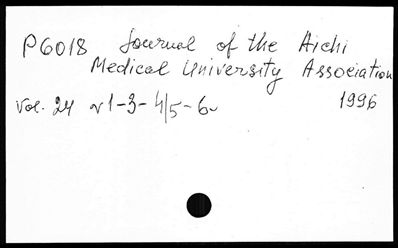 P6018 Journal of the Aichi
Medical University Association
vol. 24 N1-3-4/5-6 1996